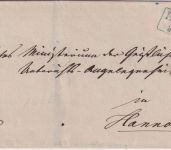 Ministerium der Geistlich
Unterrichts-Angelegenhei
in
Hanno